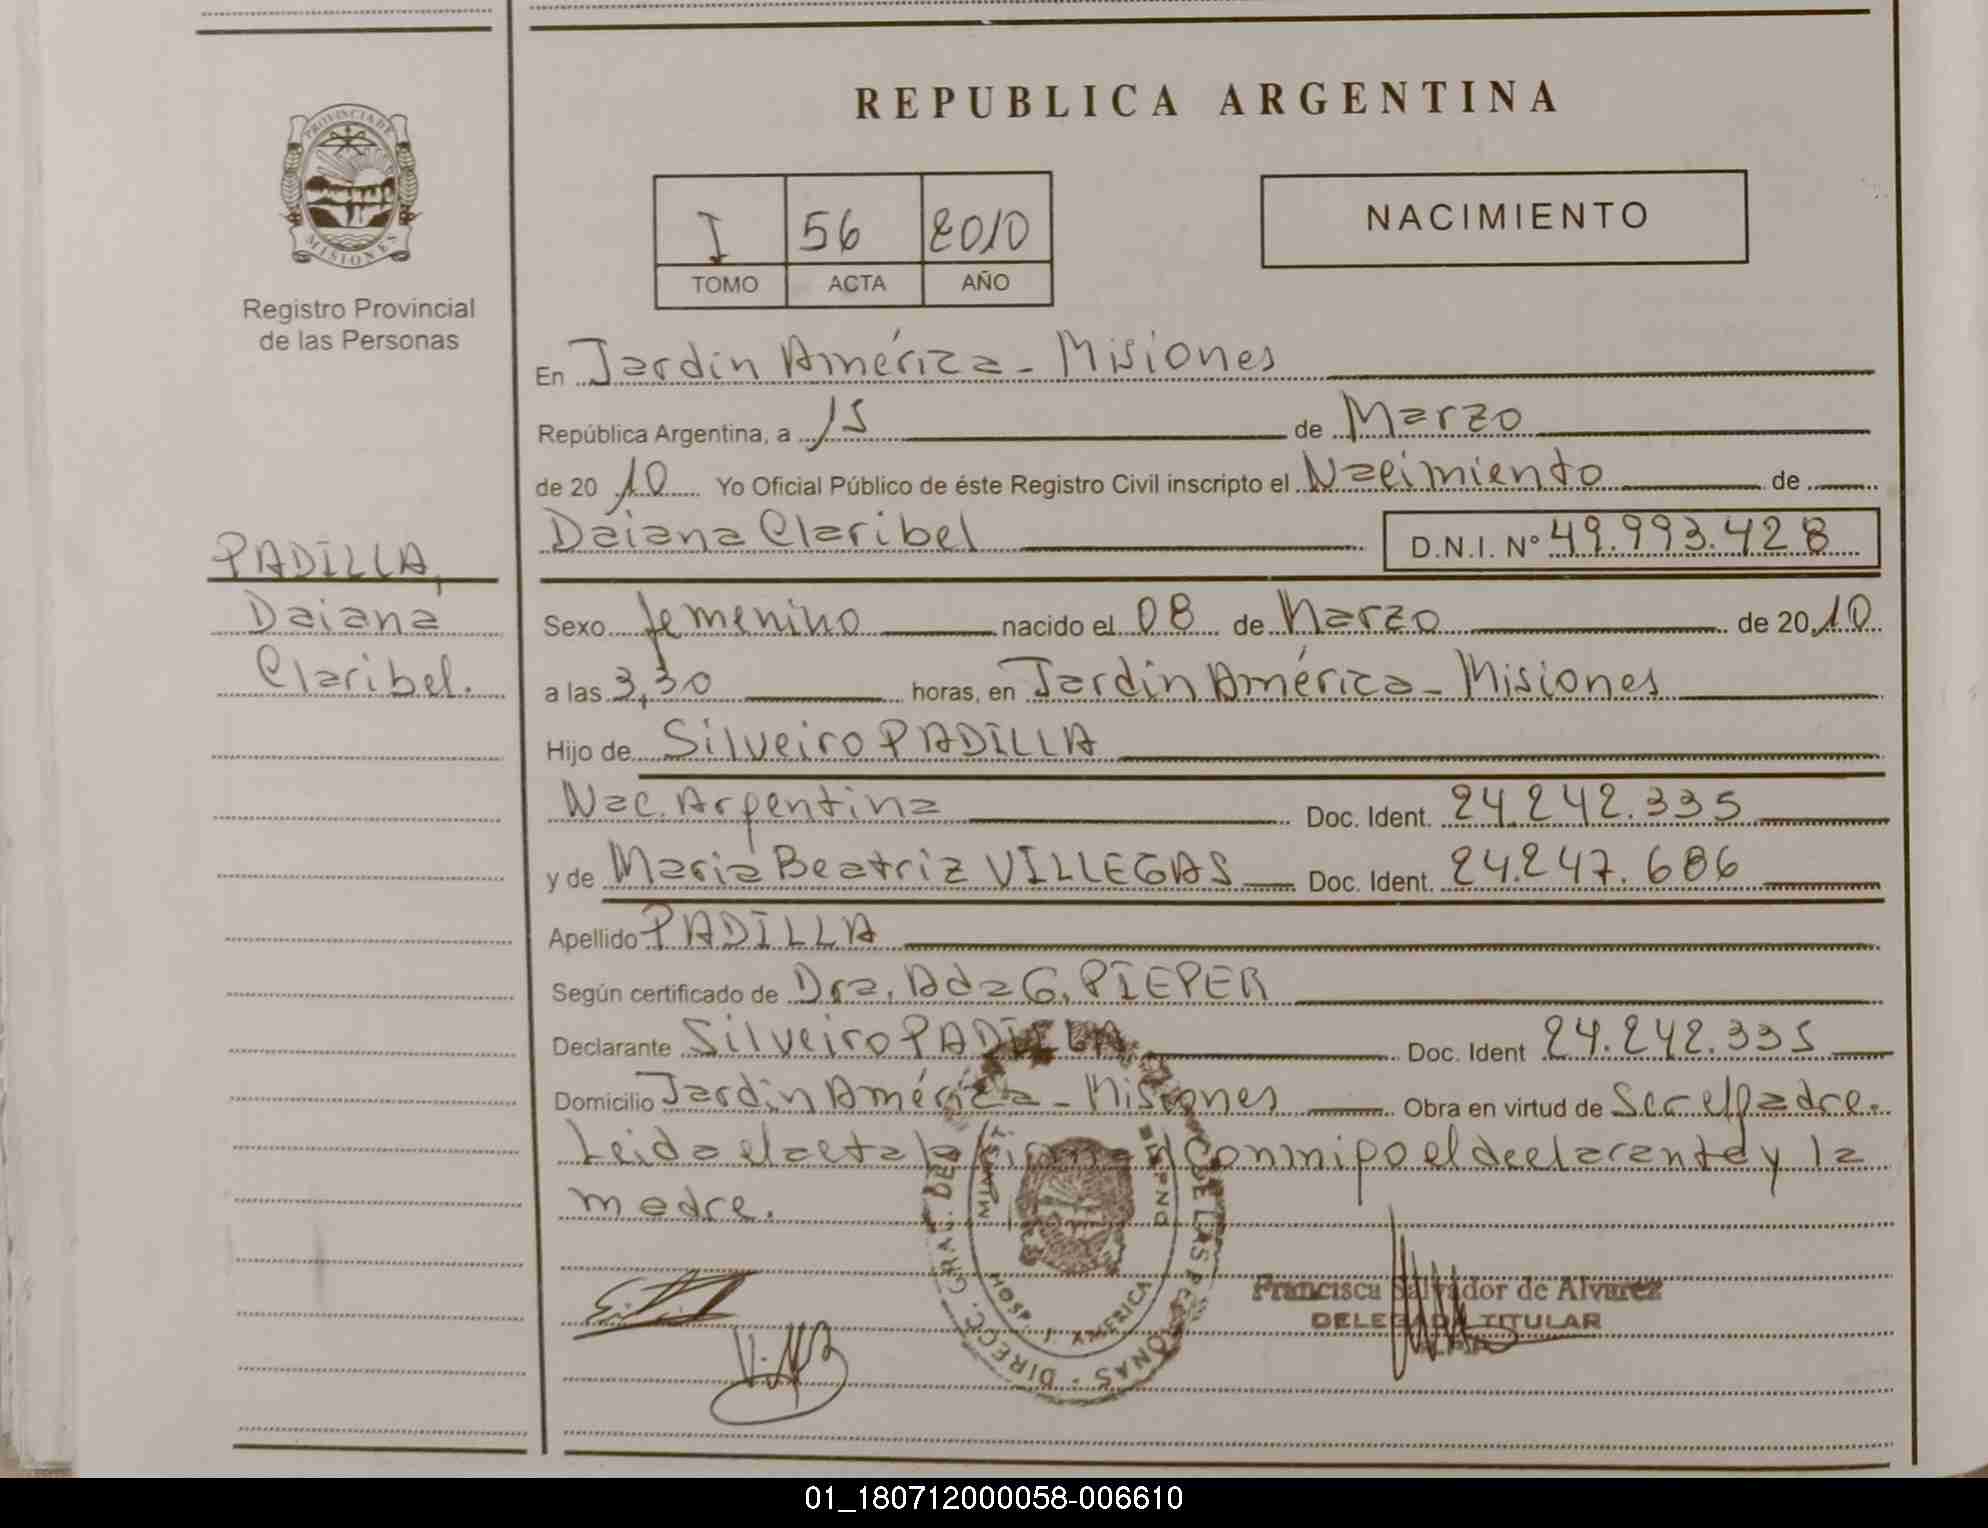 PROVINCIA DE
MISIONES
Registro Provincial
de las Personas
PADILLA,
Daiana
Claribel.
REPUBLICA ARGENTINA
I 56 2010
TOMO ACTA AÑO
NACIMIENTO
En Jardín América - Misiones
República Argentina, a 15 de Marzo
de 2010 Yo Oficial Público de éste Registro Civil inscripto el Nacimiento de
Daiana Claribel D.N.I. Nº 49.993.428
Sexo femenino nacido el 08 de Marzo de 2010
a las 3,30 horas, en Jardín América - Misiones
Hijo de Silveiro PADILLA
Nac. Argentina Doc. Ident. 24.242.335
y de Maria Beatriz VILLEGAS Doc. Ident. 24.247.686
Apellido PADILLA
Según certificado de Dra. Ada G. PIEPER
Declarante Silveiro PADILLA Doc. Ident 24.242.335
Domicilio Jardín América - Misiones Obra en virtud de Ser el padre.
Leida el acta la firman Conmigo el declarante y la
madre.
DIRECC. GRAL. DEL DE LAS PERSONAS
HOSP. J. AMERICA
Francisca Salvador de Alvarez
DELEGADA TITULAR
01_180712000058-006610